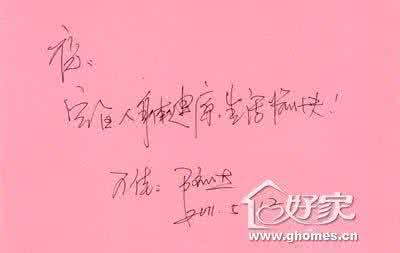 祝:
人身体健康,生活愉快!
万佳:
2011.5.12
好家
www.ghomes.cn